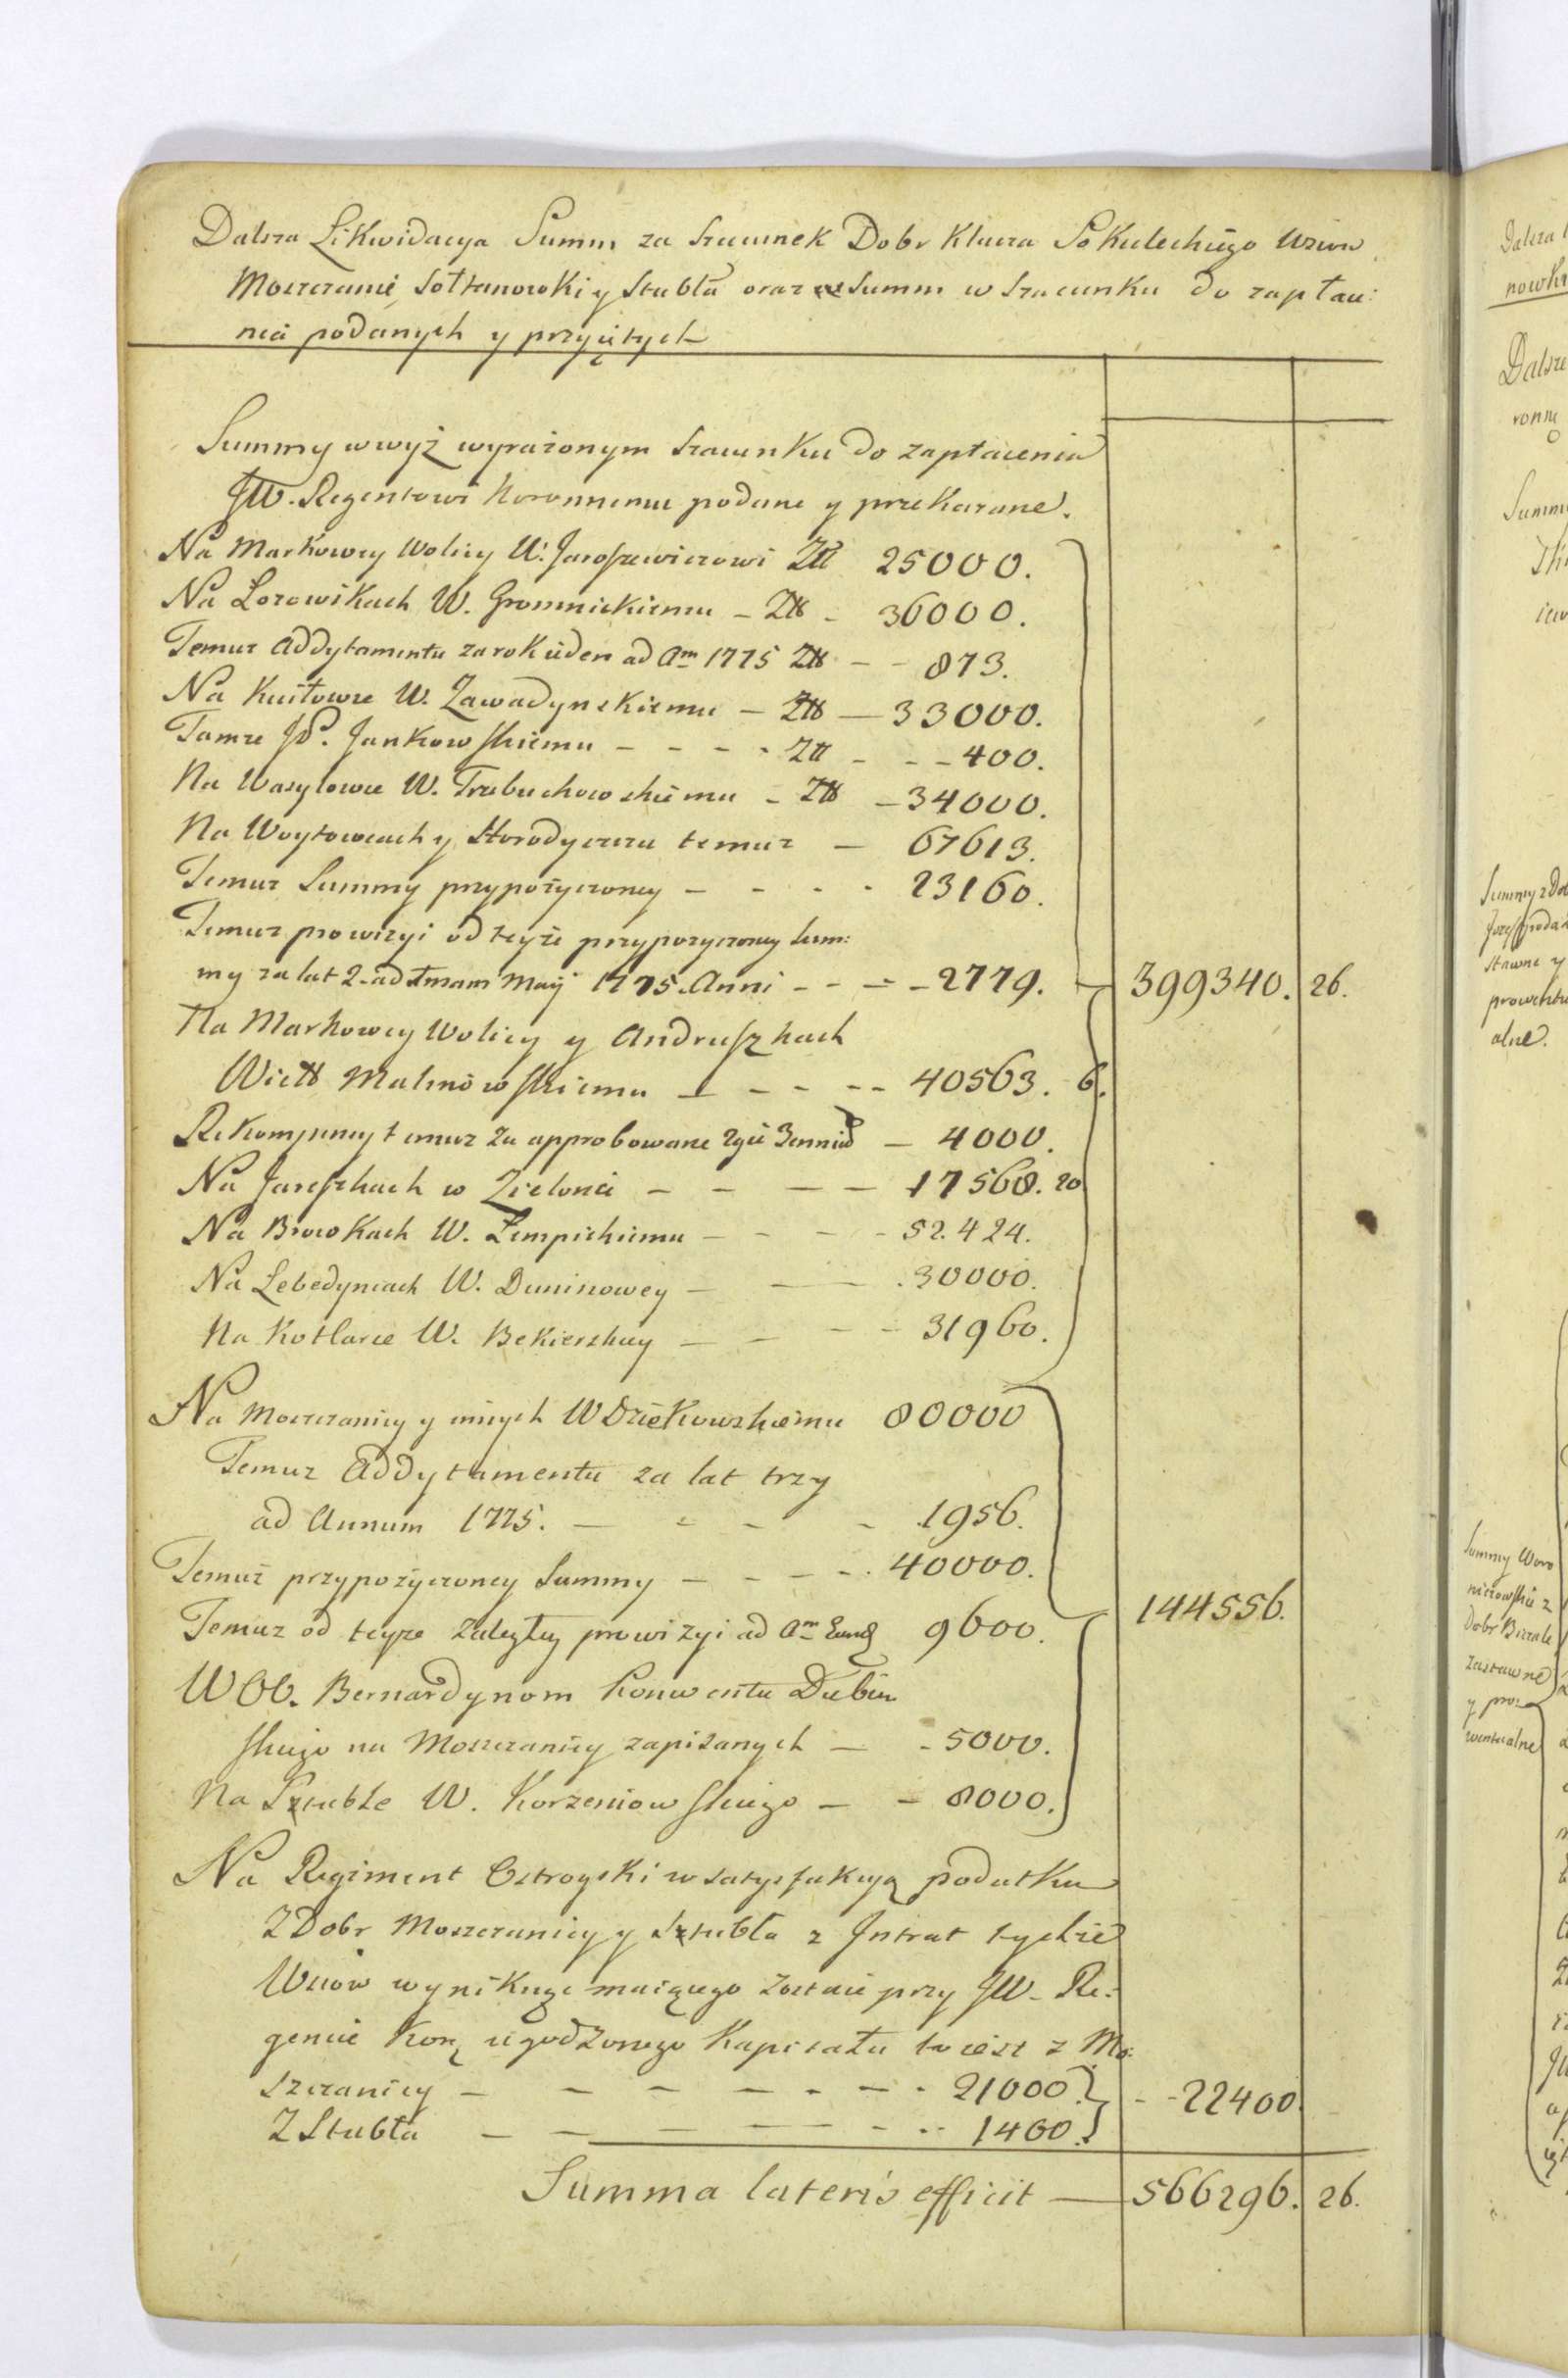 Dalsza Likwidacya Summ za Szacunek Dobr Klucza Sokuleckiego Wsiow
Moszczanie Sołtanowki y Stubła oraz Summ w Szacunku do zapłac:
nia podanych y przyiętych
Summy w wyż wyrażonym Szacunku do zapłacenia
JW. Regentowi Koronnemu podane y przekazane.
Na Markowey Wolicy W. Jaroszewiczowi Złł 25000.
Na Lozowikach W. Gromnickiemu - Złł - 36000.
Temuz Addytamentu za rok ieden ad Am 1775 Złł - - 873.
Na Kuiłowce W. Zawadynskiemu - Złł - 33000.
Tamze JP. Jankowskiemu - - - - Złł - - - 400.
Na Wasylowce W. Trzebuchowskiemu - Złł - 34000.
Na Woytowcach y Horodyszczu temuz - 67613.
Temuz Summy przypożyczoney - - - - 23160.
Temuz prowizyi od teyże przypozyczoney Sum:
my za lat 2. ad Imam Maij 1775. Anni - - - - 2779. 399340. 26.
Na Markowey Wolicy y Andruszkach
Wielł Malinowskiemu - - - - - 40563. 6.
Rekompensy temuz za approbowane - 4000.
Na Jareszkach w Zielonei - - - - 17568. 20
Na Browkach W. Łempickiemu - - - - 52.424.
Na Lebedyncach W. Duninowey - - - .30000.
Na Kotlarce W. Bekierskiey - - - - 31960.
Na Moszczanicy y innych W Dziekowskiemu 80000
Temuz Addytamentu za lat trzy
ad Annum 1775. - - - - 1956.
Temuż przypożyczoney Summy - - - - . 40000.
Temuz od teyze zaległey prowizyi ad Am Eund 9600. 144556.
WOO. Bernardynom Konwentu Dubin
skiego na Moszczanicy zapisanych - - 5000.
Na Sztuble W. Korzeniowskiego - - 8000.
Na Regiment Ostrogski w satysfakcyą podatku
Z Dobr Moszczanicy y Sztubła z Intrat tychże
Wsiow wynikaiącego maiącego zostać przy JW. Re:
gencie Kor: ugodzonego Kapitału to iest z Mo:
szczanicy - - - - - - - 21000. - - 22400.
Z Stubła - - - - - - 1400.
Summa lateris efficit - 566296. 26.
Dalsze
Summy z Dob
stawne y
alne.
Summy Woro
nieckie z
zastawne
y pro:
wentualne